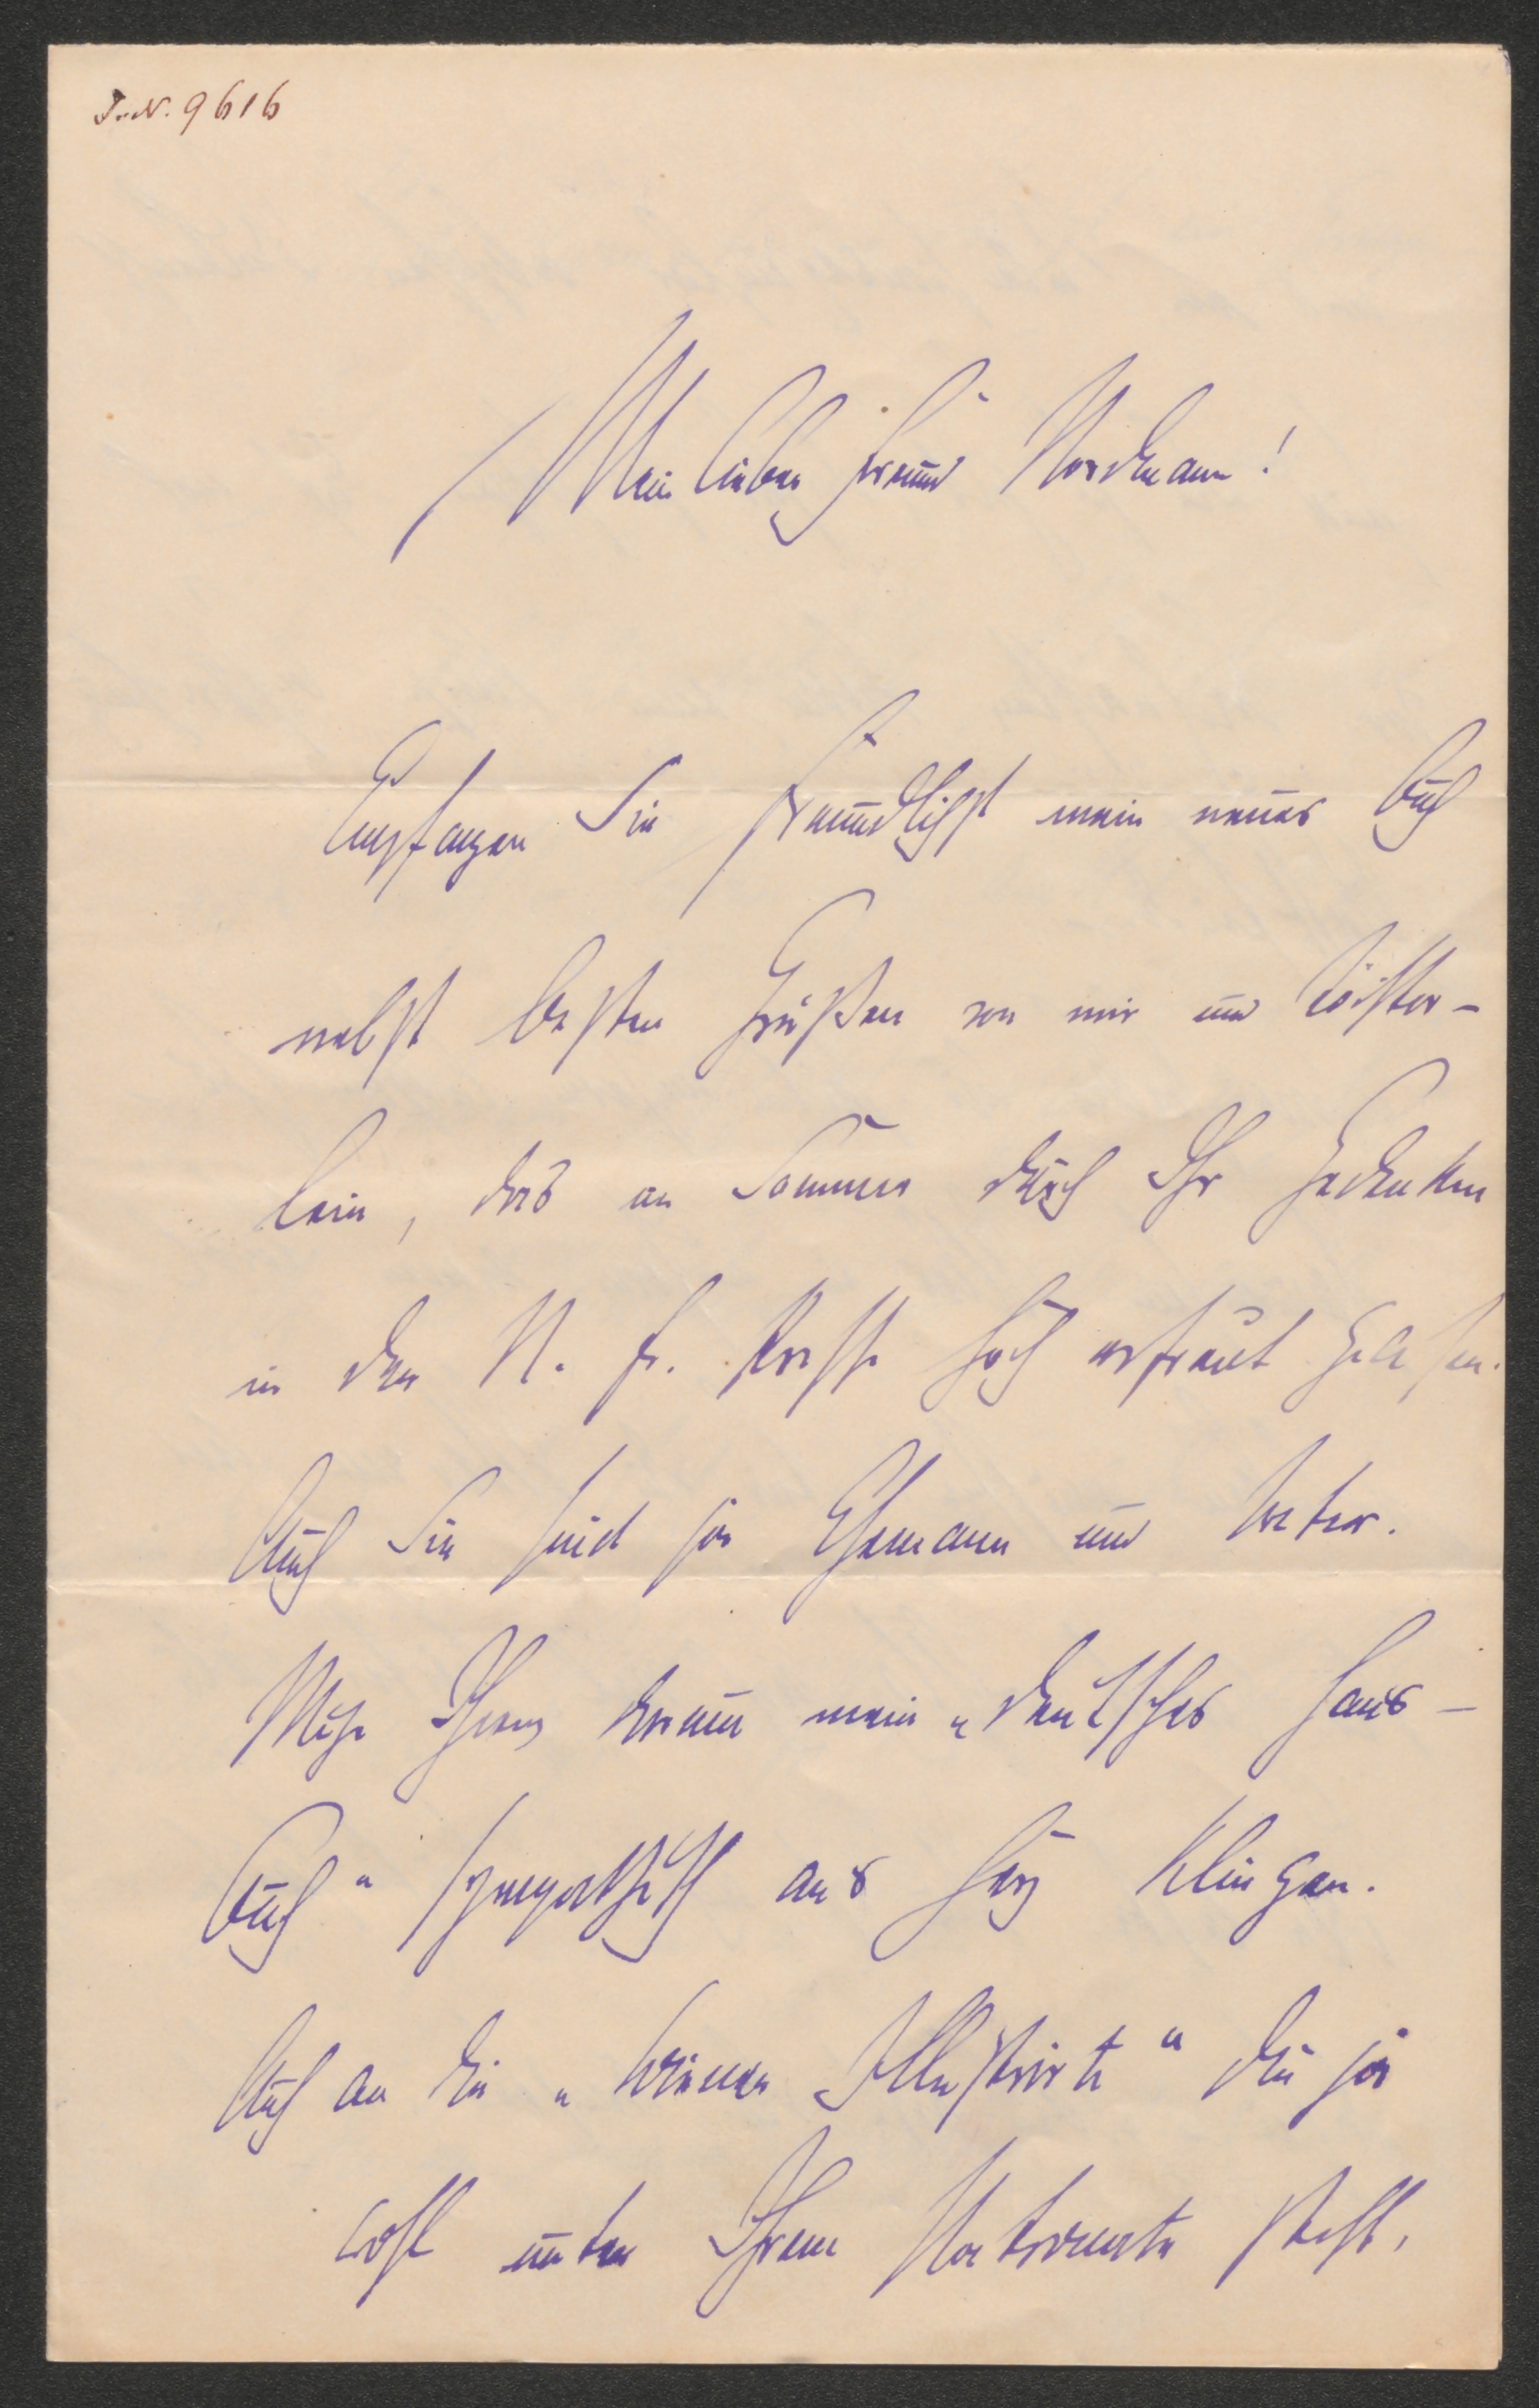 J.-N. 9616
Mein lieber Freund Nordmann!
Empfangen Sie freundlichst mein neues Buch
nebst besten Grüßen von mir und Töchter-
lein, das im Sommer durch Ihr Gedenken
in der N. fr. Presse hoch erfreut gewesen.
Auch Sie sind ja Ehemann und Vater.
Möge Ihnen darum mein „deutsches Haus-
buch“ sympathisch ans Herz klingen.
Auch an die „Wiener Illustrirte“ die ja
wohl unter Ihrem Patronate steht,